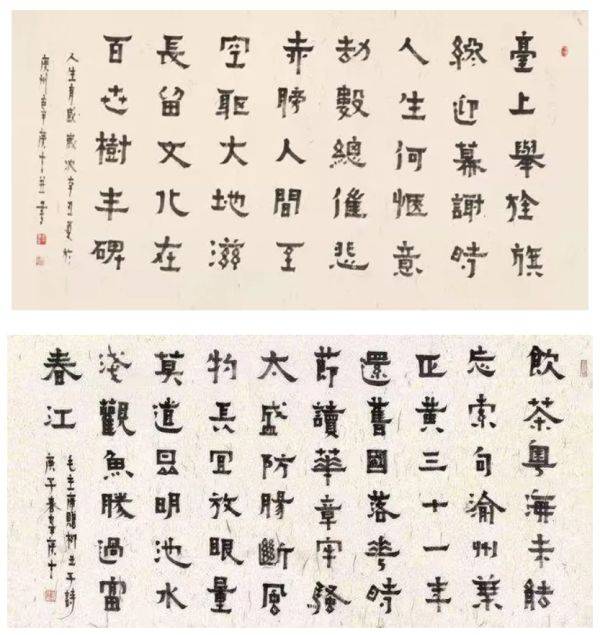 臺上舉旌旗
終迎幕謝時
人生何愜意
劫數總催悲
赤膀人間至
空軀大地滋
長留文化在
百世樹丰碑
人生有感歲次辛丑夏於
廣州 并書
飲茶粵海未能
忘索句渝州葉
正黃三十一年
還舊國落花時
節讀華章牢騷
太盛防腸斷風
物長宜放眼量
莫道昆明池水
淺觀魚勝過富
春江
毛主席贈柳亞子詩
庚子春